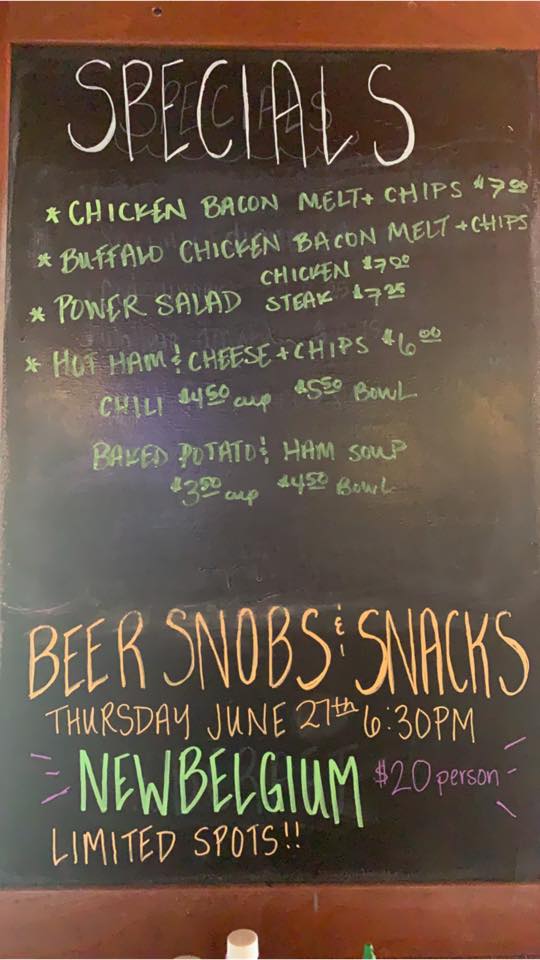 SPECIALS
* CHICKEN BACON MELT + CHIPS $7.00
* BUFFALO CHICKEN BACON MELT + CHIPS
* POWER SALAD CHICKEN $7.00
STEAK $7.25
* HOT HAM & CHEESE + CHIPS $6.00
CHILI $4.50 cup $5.50 BOWL
BAKED POTATO & HAM SOUP
$3.50 cup $4.50 BOWL
BEER SNOBS & SNACKS
THURSDAY JUNE 27th 6:30PM
NEW BELGIUM $20 person
LIMITED SPOTS!!